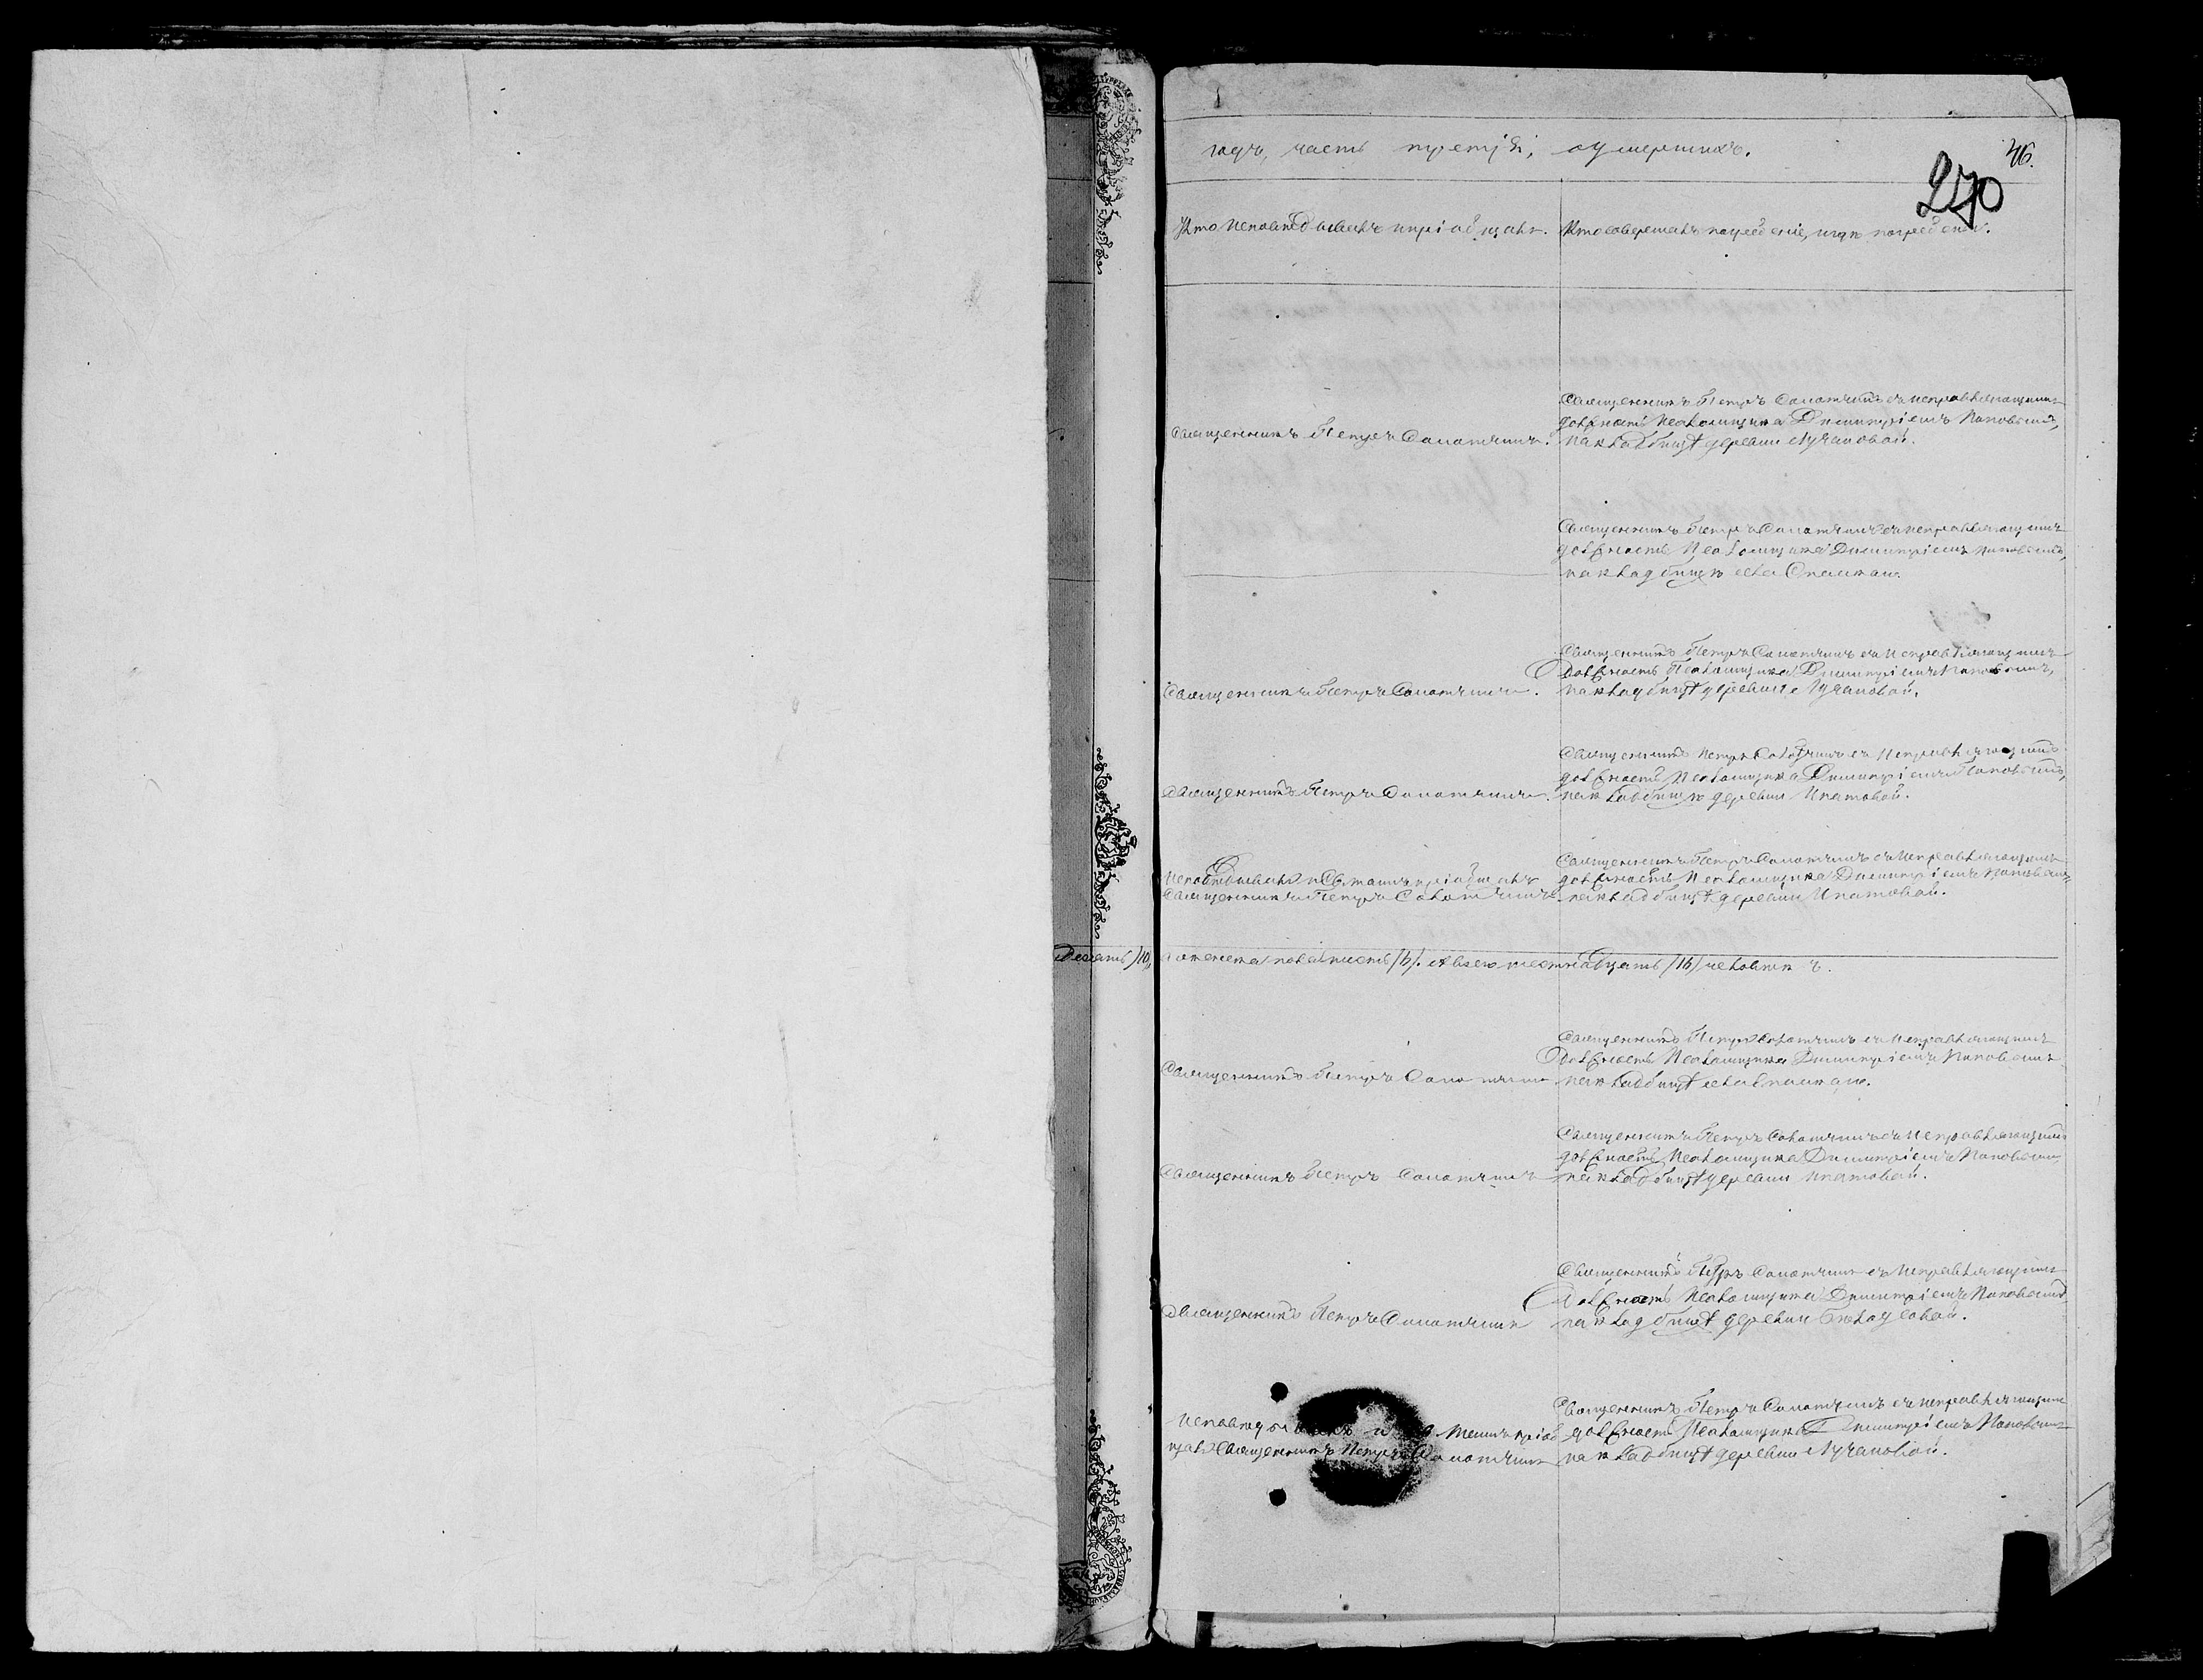 годъ, часть третія, о умершихъ.
46.
270
Кто исповѣдывалъ и пріобщалъ.
Кто совершалъ погребеніе, и гдѣ погребены.
Священникъ Петръ Солотчинъ.
Священникъ Петръ Солотчинъ съ исправляющимъ
должность Псаломщика Димитріемъ Поповымъ,
на кладбищѣ деревни Лучановой.
Священникъ Петръ Солотчинъ съ исправляющимъ
должность Псаломщика Димитріемъ Поповымъ,
на кладбищѣ села Спаскаго.
Священникъ Петръ Солотчинъ.
Священникъ Петръ Солотчинъ съ исправляющимъ
должность Псаломщика Димитріемъ Поповымъ,
на кладбищѣ деревни Лучановой.
Священникъ Петръ Солотчинъ.
Священникъ Петръ Солотчинъ съ исправляющимъ
должность Псаломщика Димитріемъ Поповымъ,
на кладбищѣ деревни Ипатовой.
Исповѣдывалъ и Св. таинъ пріобщалъ
Священникъ Петръ Солотчинъ.
Священникъ Петръ Солотчинъ съ исправляющимъ
должность Псаломщика Димитріемъ Поповымъ,
на кладбищѣ деревни Ипатовой.
Десять /10/, а женска пола шесть /6/. А всего шестнадцать /16/ человѣкъ.
Священникъ Петръ Солотчинъ
Священникъ Петръ Солотчинъ съ исправляющимъ
должность Псаломщика Димитріемъ Поповымъ
на кладбищѣ села Спаскаго.
Священникъ Петръ Солотчинъ
Священникъ Петръ Солотчинъ съ исправляющимъ
должность Псаломщика Димитріемъ Поповымъ,
на кладбищѣ деревни Ипатовой.
Священникъ Петръ Солотчинъ
Священникъ Петръ Солотчинъ съ исправляющимъ
должность Псаломщика Димитріемъ Поповымъ,
на кладбищѣ деревни Бѣлоусовой.
Исповѣдывалъ и таинъ пріоб
щалъ Священникъ Петръ Солотчинъ
Священникъ Петръ Солотчинъ съ исправляющимъ
должность Псаломщика Димитріемъ Поповымъ
на кладбищѣ деревни Лучановой.